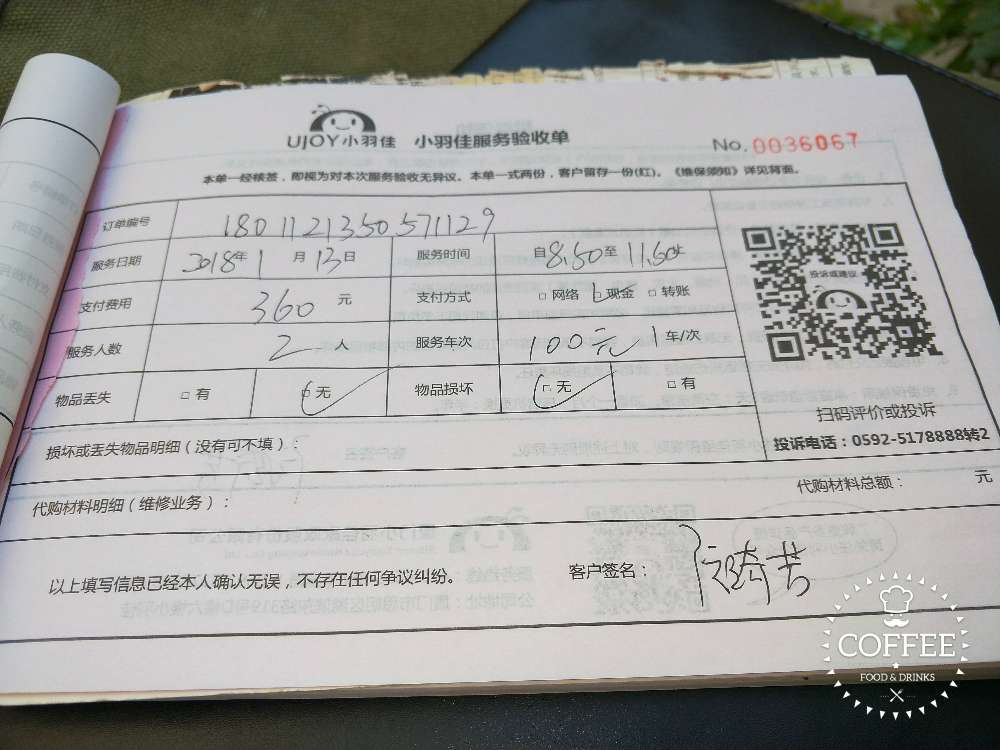 UJOY小羽佳 小羽佳服务验收单 No.0036067
本单一经核签，即视为对本次服务验收无异议。本单一式两份，客户留存一份(红)。《维保须知》详见背面。
订单编号 180112135057 1129
服务日期 2018年1月13日 服务时间 自8.50至11.50止
支付费用 360元 支付方式 □网络 □现金 □转账
服务人数 2人 服务车次 100元 1车/次
物品丢失 □有 □无 物品损坏 □无 □有
投诉或建议
扫码评价或投诉
投诉电话：0592-5178888转2
损坏或丢失物品明细（没有可不填）：
代购材料明细（维修业务）： 代购材料总额： 元
以上填写信息已经本人确认无误，不存在任何争议纠纷。 客户签名：
COFFEE
FOOD & DRINKS